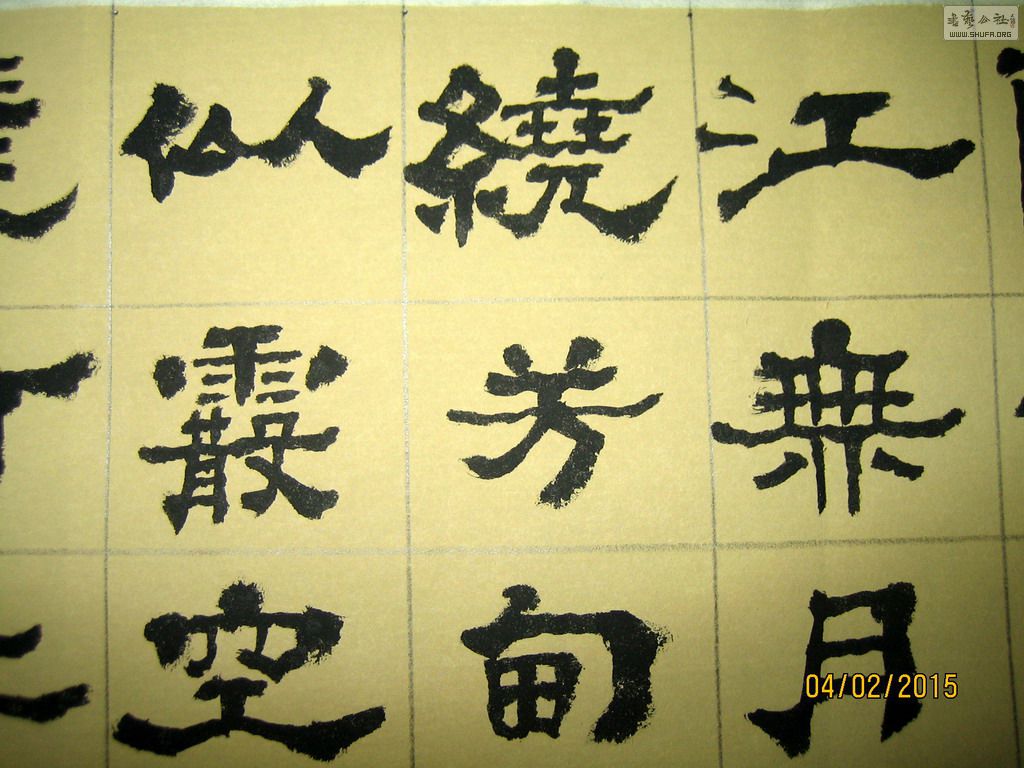 江無月
繞芳甸
似霰空
04/02/2015
書藝公社
WWW.SHUFA.ORG